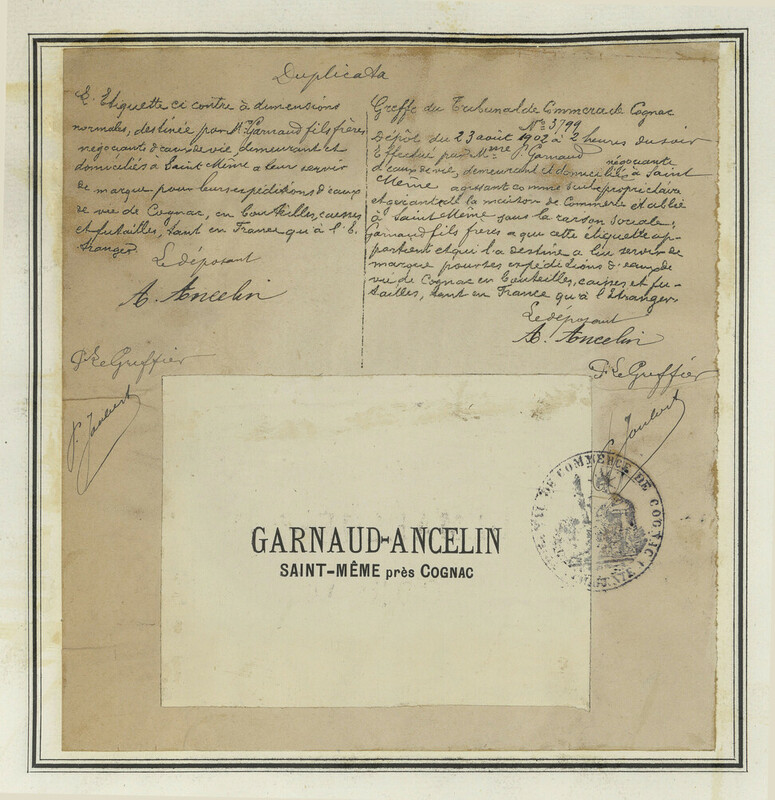 Duplicata
L'Etiquette ci contre à dimensions
normales, destinée par Mrs Garnaud fils frères
négociants d'eaux de vie demeurant et
domiciliés à Saint Même a leur servir
de marque pour leurs expéditions d'eaux
de vie de Cognac, en bouteilles, caisses
et futailles, tant en France qu'à l'E
tranger
Le déposant
A. Ancelin
Pr Le Greffier
Greffe du Tribunal de Commerce de Cognac
No 3799
Dépôt du 23 août 1902 à 2 heures du soir
Effectué par Mme P. Garnaud négociante
d'eaux de vie, demeurant et domiciliée à Saint
Même agissant comme propriétaire
et gérante de la maison de Commerce établie
à Saint Même sous la raison sociale,
Garnaud fils frères a que cette étiquette ap-
partient et qu'il a destine a lui servir de
marque pour ses expéditions d'eaux de
vie de Cognac en bouteilles, caisses et fu-
tailles, tant en France qu'à l'Etranger,
Le déposant
A. Ancelin
Pr Le Greffier
GARNAUD-ANCELIN
SAINT-MÊME près COGNAC
DE COMMERCE DE COGNAC